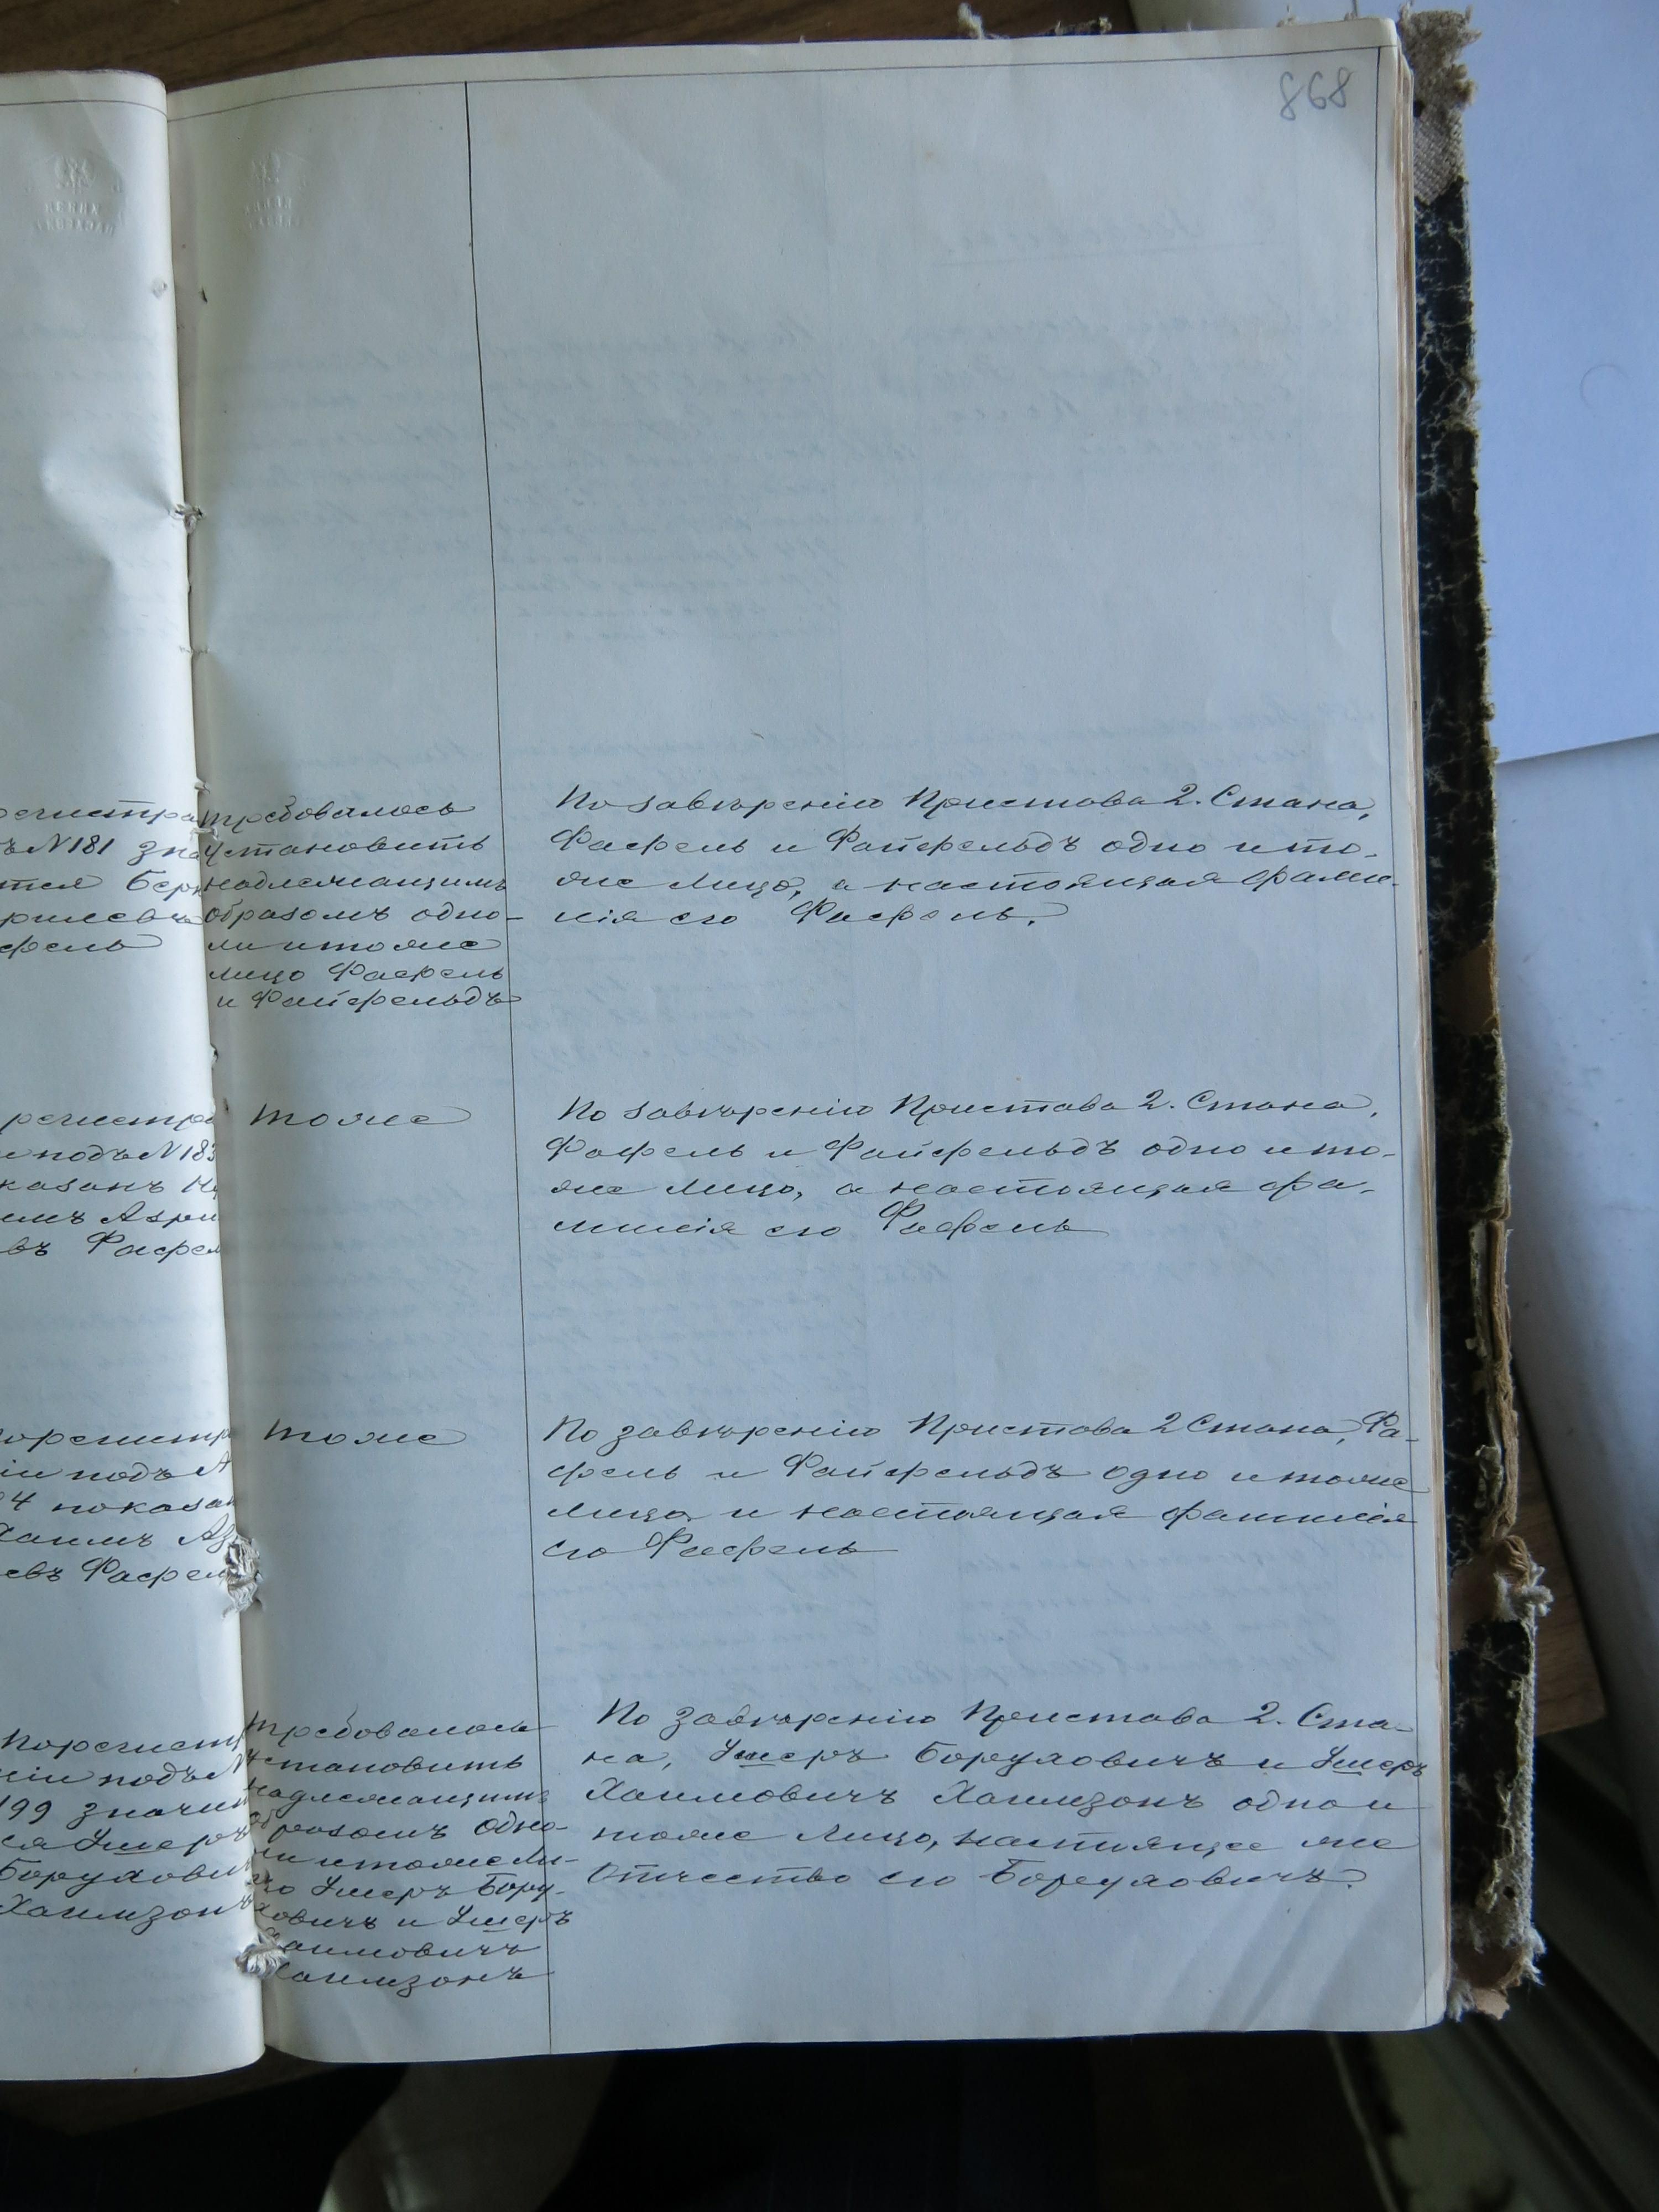 868
регистра
ъ N 181 зна
тся Бер
рилевъ
фель
требовалось
установить
надлежащимъ
образомъ одно-
ли и тоже
лицо Фаефель
и Файфельдъ
По завѣренію Пристава 2. Стана,
Фаефель и Файфельдъ одно и то-
же лицо, а настоящая фами-
лія его Фаефель.
регистра
и подъ N 183
казанъ
имъ Азри
въ Фаефел
тоже
По завѣренію Пристава 2. Стана,
Фаефель и Файфельдъ одно и то-
же лицо, а настоящая фа-
милія его Фаефель
орегистр
іи подъ N
4 показан
Хаимъ Аз
евъ Фаефел
тоже
По завѣренію Пристава 2 Стана, Фа-
ефель и Файфельдъ одно и тоже
лицо и настоящая фамилія
его Фаефель
По регист
ціи подъ N
199 значит
ся Ушеръ
Борухови
Хаимзонъ
требовалось
установить
надлежащимъ
образомъ одно-
ли и тоже ли-
цо Ушеръ Бору-
ховичъ и Ушеръ
Хаимовичъ
Хаимзонъ
По завѣренію Пристава 2. Ста-
на, Ушеръ Боруховичъ и Ушеръ
Хаимовичъ Хаимзонъ одно и
тоже лицо, настоящее же
отчество его Боруховичъ.